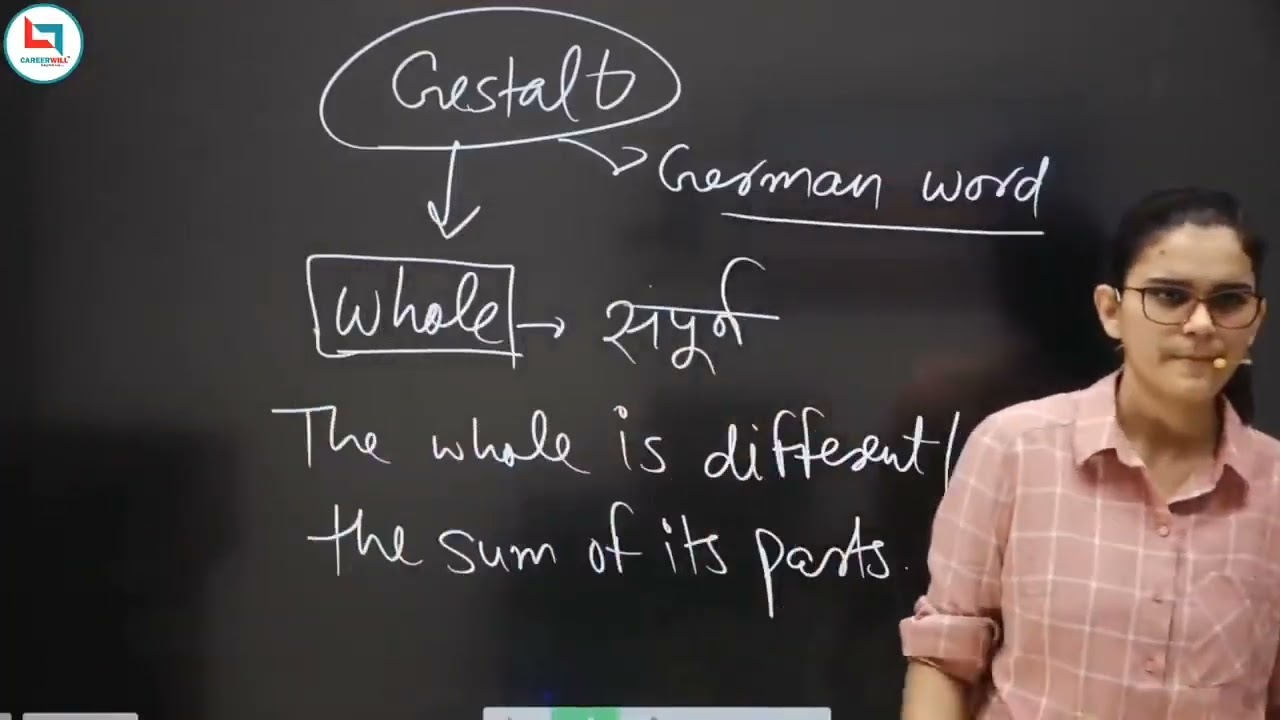 CAREERWILL
Gestalt
German word
Whole → संपूर्न
The whole is different/
the sum of its parts.